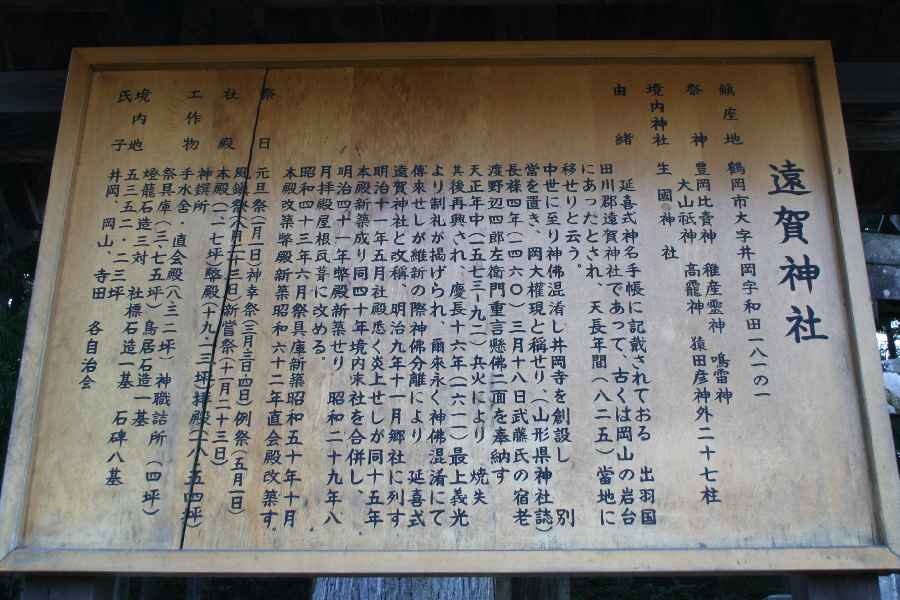 遠賀神社
鎮座地　鶴岡市大字井岡字和田一八一の一
祭神　豊岡比賣神　稚産霊神　鳴雷神
大山祇神　高龗神　猿田彦神外二十七柱
境内神社　生國神社
由緒
延喜式神名手帳に記載されておる　出羽国
田川郡遠賀神社であって、古くは岡山の岩台
にあったとされ、天長年間（八二五）當地に
移せりと云う。
中世に至り神佛混淆し井岡寺を創設し　別
當を置き、岡大権現と稱せり（山形県神社誌）
長祿四年（一四六〇）三月十八日武藤氏の宿老
渡野辺四郎左衛門重言懸佛二面を奉納す
天正年中（一五七三-九二）兵火により　焼失
其後再興され、慶長十六年（一六一一）最上義光
より制札が揚げられ、爾来永く神佛混淆にて
傳来せしが維新の際神佛分離により　延喜式
遠賀神社と改稱、明治九年十一月郷社に列す
明治十一年五月社殿悉く炎上せしが同十五年
本殿新築成り同四十年境内末社を合併し、
明治四十一年幣殿新築せり　昭和二十九年八
月拝殿屋根瓦葺に改める。
昭和四十三年六月祭具庫新築昭和五十年十月
本殿改築幣殿新築昭和六十二年直会殿改築す
祭日　元旦祭（一月一日）神幸祭（三月三・四日）例祭（五月一日）
風鎮祭（八月二十三日）新嘗祭（十一月二十三日）
社殿　本殿（一二・七坪）幣殿（十九・三坪）拝殿（一八・五四坪）
神饌所
工作物　手水舎・直会殿（八・三二坪）　神職詰所（四坪）
祭具庫（三・七五坪）鳥居石造一基
燈籠石造三対　社標石造一基　石碑八基
境内地　五三五二・二三坪
氏子　井岡、岡山、寺田　各自治会